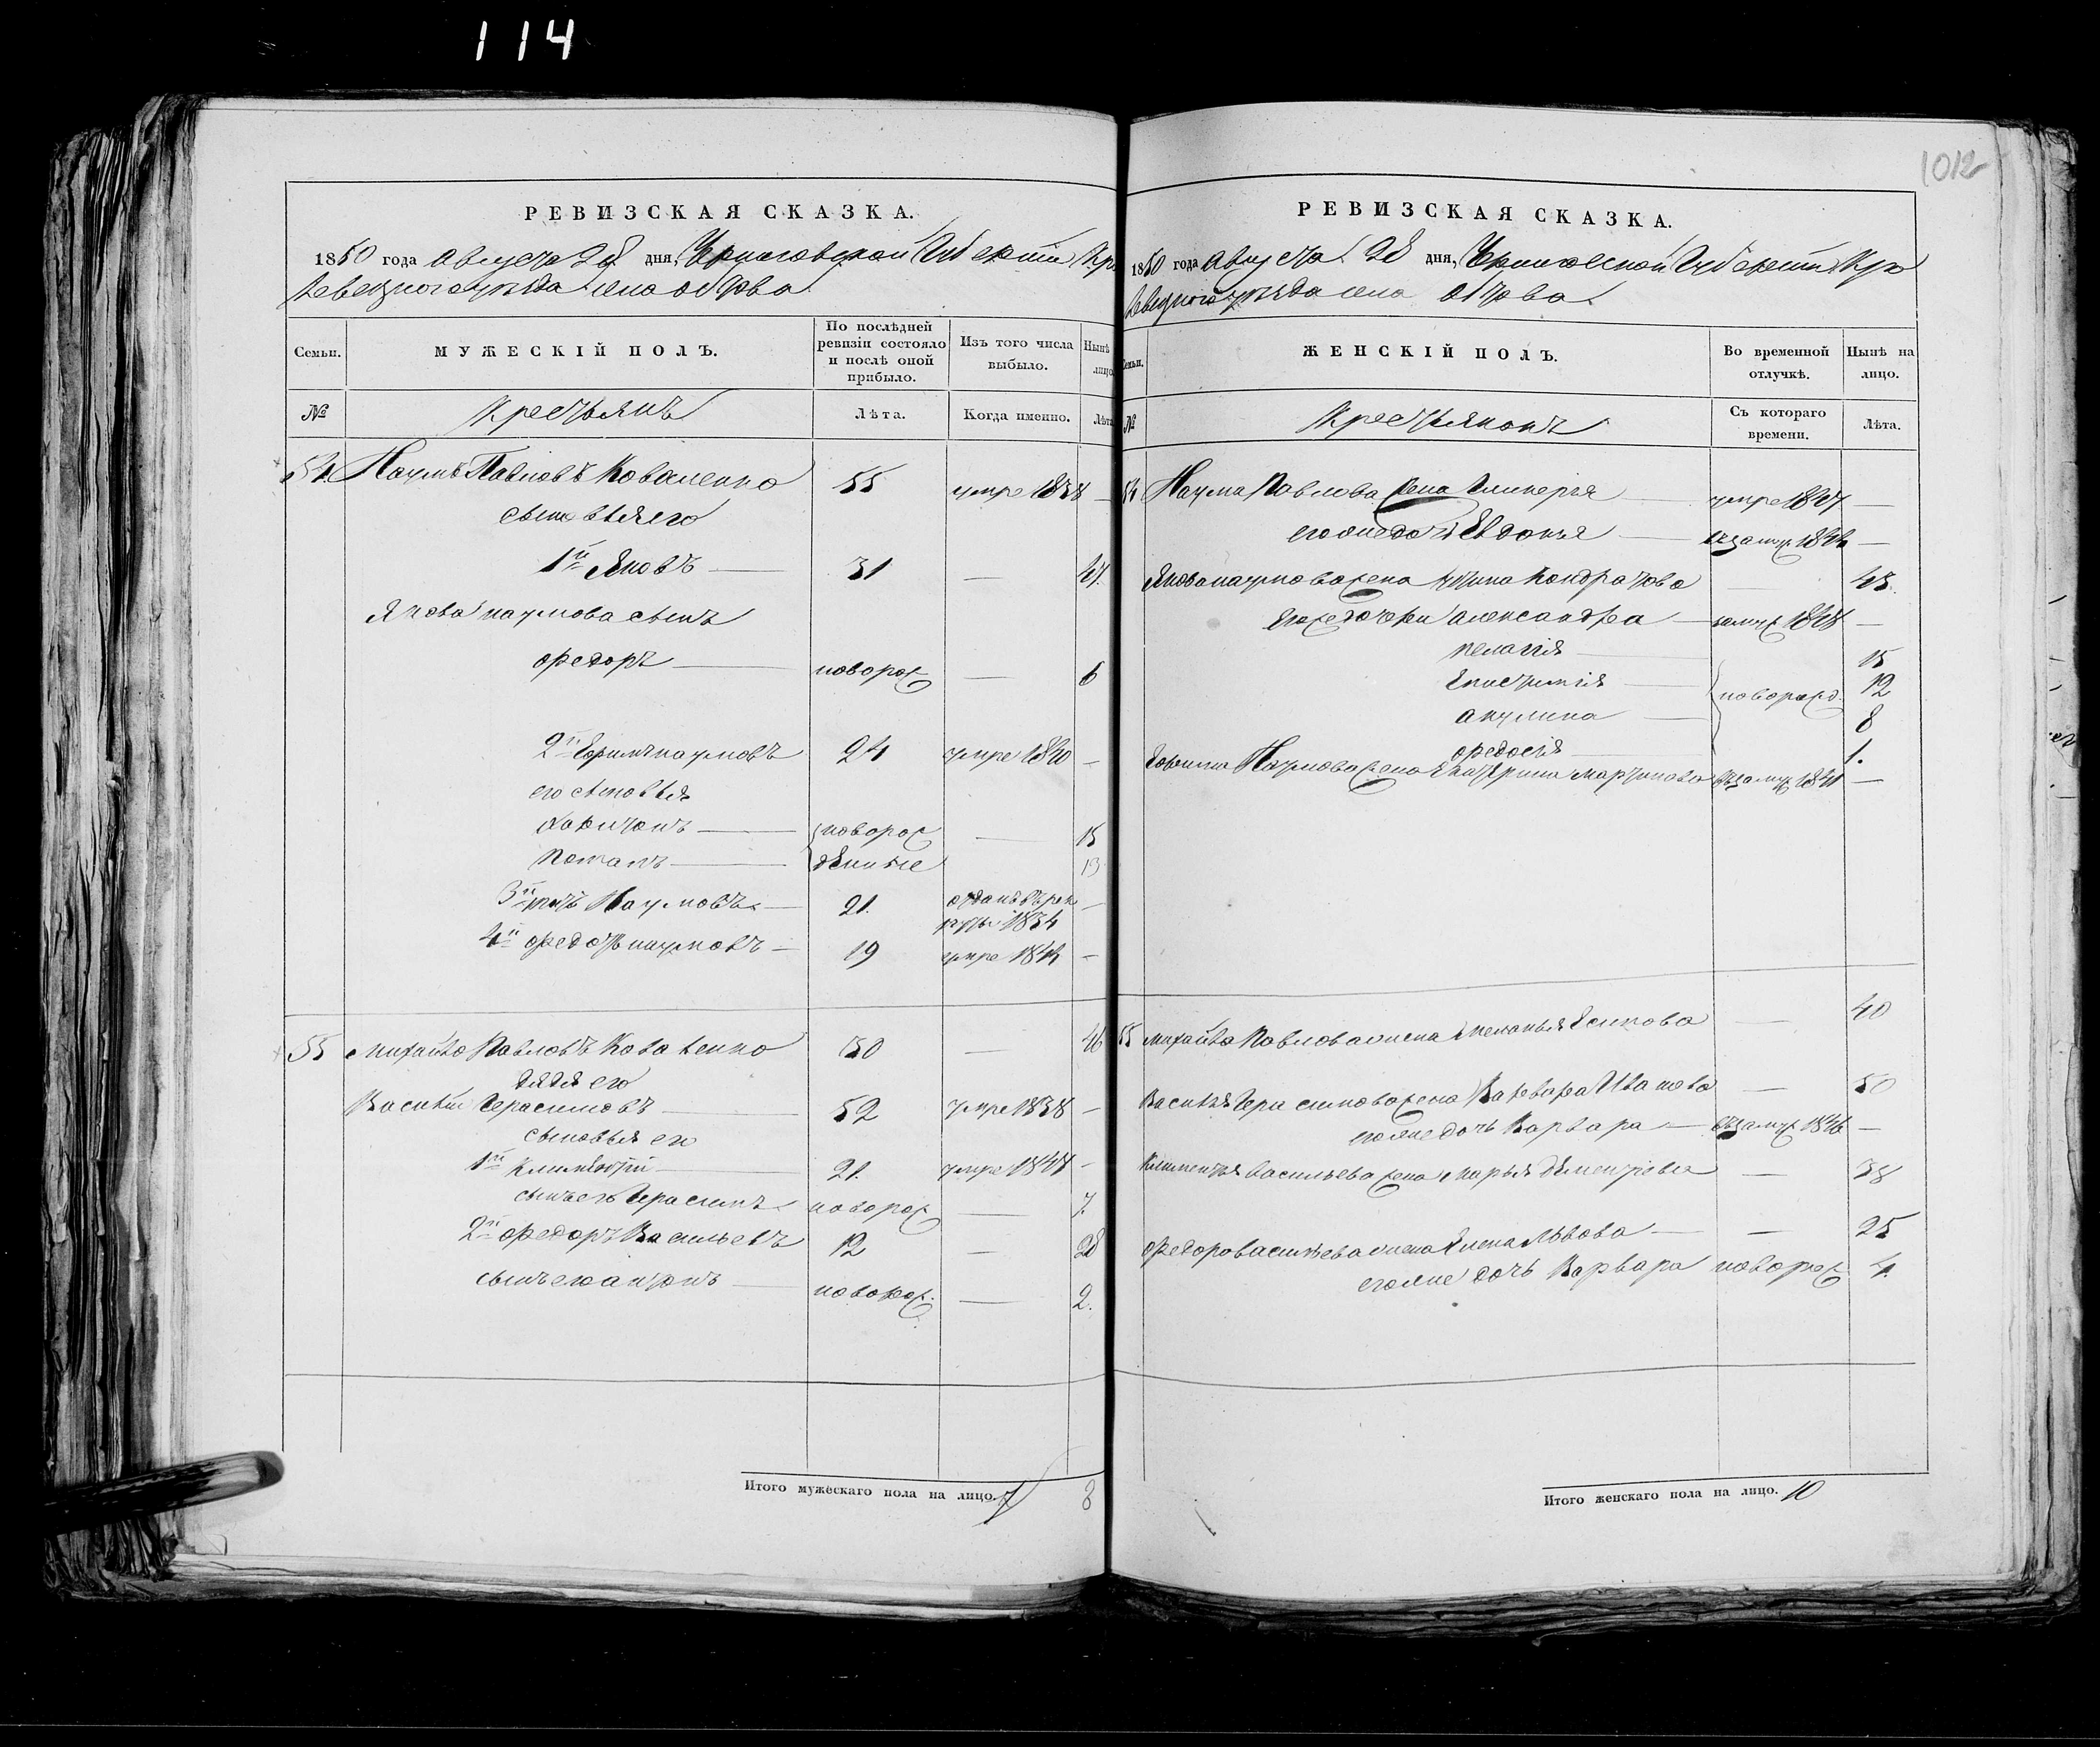 114
1012
РЕВИЗСКАЯ СКАЗКА.
1850 года августа 28 дня, Черниговской Губернии Кро
левецкого уезда села
Семьи.
МУЖЕСКІЙ ПОЛЪ.
По послѣдней ревизіи состояло и послѣ оной прибыло.
Изъ того числа выбыло.
Нынѣ лицо.
№
Крестьянъ
Лѣта.
Когда именно.
Лѣта
54 Наумъ Павловъ Коваленко 55 умре 1838 —
сыновья его
1й Яковъ — 31 — 47.
Якова наумова сынъ
федоръ — новорож — 6
2й Ефимъ наумовъ 24 умре 1840 —
его сыновья
Харитонъ — новорож — 15
Потапъ — дѣнные 13
3й Наумовъ — 21. отданъ въ рек
руты 1834 —
4й федотъ наумовъ — 19 умре 1844 —
55 михайло Павловъ Коваленко 30 — 46
дядя его
Василій Герасимовъ — 52 умре 1838 —
сыновья его
1й Климентій — 21. умре 1847 —
сынъ его Герасимъ новорож — 7.
2й федоръ Васильевъ 12 — 28
сынъ его антонъ — новорож. — 2.
Итого мужескаго пола на лицо. 7 8
РЕВИЗСКАЯ СКАЗКА.
1850 года августа 28 дня, Черниговской Губернии Кро
левецкого уезда села
Семьи.
ЖЕНСКІЙ ПОЛЪ.
Во временной отлучкѣ.
Нынѣ на лицо.
№
Крестьянокъ
Съ котораго времени.
Лѣта.
54 Наума Павлова жена Гликерья — умре 1847 —
его же дочь Евдокья — взамуж 1844 —
Якова наумова жена Кондратова — 43.
Его же дочери александра — взамуж 1848 —
пелагія — 15
Епистимія — 12
новорожд.
акулина — 8
федосія — 1.
Ефима Наумова жена Екатерина мартинова взамуж 1841 —
55 михайла Павлова жена меланья Есипова — 40
Василья Герасимова жена Варвара Иванова — 50
его же дочь Варвара — взамуж 1846 —
Климентья васильева жена марья дементіева — 38
федора васильева жена Елена Львова — — 25
его же дочь Варвара новорож 4.
Итого женскаго пола на лицо. 10